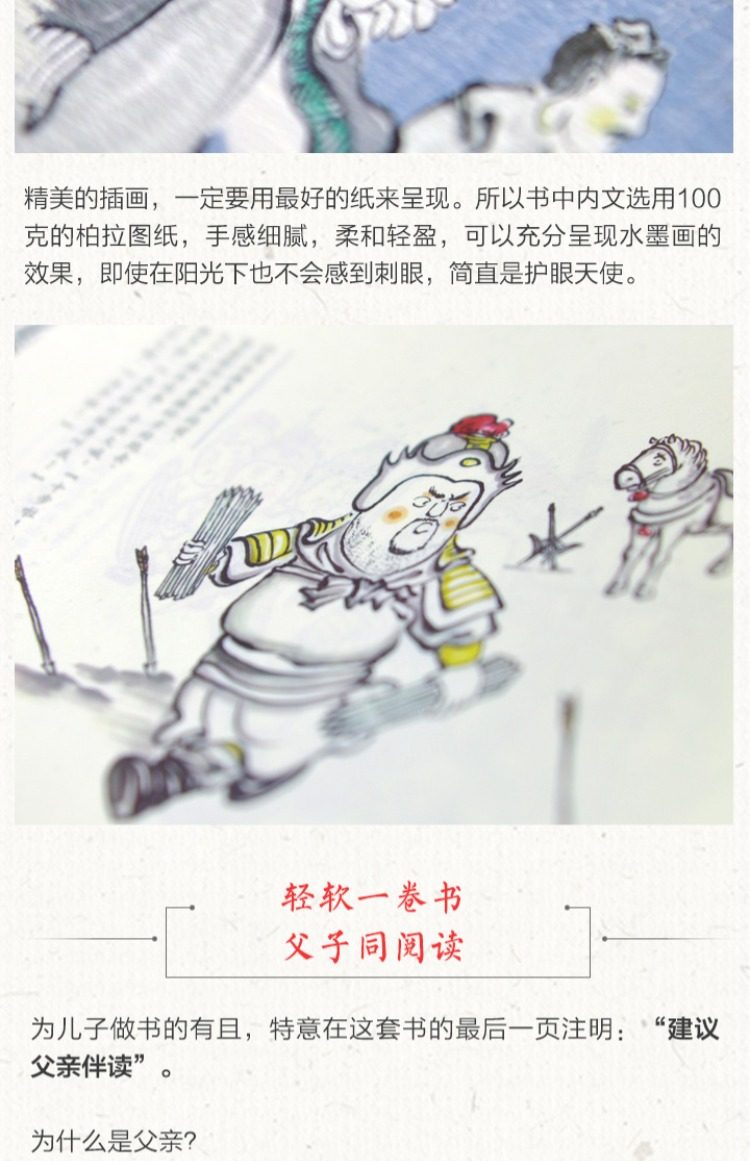 精美的插画，一定要用最好的纸来呈现。所以书中内文选用100
克的柏拉图纸，手感细腻，柔和轻盈，可以充分呈现水墨画的
效果，即使在阳光下也不会感到刺眼，简直是护眼天使。
轻软一卷书
父子同阅读
为儿子做书的有且，特意在这套书的最后一页注明：“建议
父亲伴读”。
为什么是父亲？